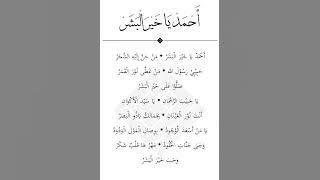 أَحْمَدْ يَا خَيْرَ الْبَشَرْ
أَحْمَدْ يَا خَيْرَ الْبَشَرْ • مَنْ حَنَّ إِلَيْهِ الشَّجَرْ
حَبِيْبِيْ رَسُوْلَ اللهِ • مَنْ غَطَّى نُوْرَ الْقَمَرْ
صَلُّوْا عَلَى خَيْرِ الْبَشَرْ
يَا حَبِيْبَ الرَّحْمَانِ • يَا سَيِّدَ الْأَكْوَانِ
أَنْتَ نُوْرُ الْعَيْنَانِ • بِجَمَالِكْ الْبَصَرْ
يَا مَنْ أَسْعَدَ الْوُجُوْدْ • بِوِصَالِ الْمَوْلَى الْوَدُوْدْ
جَنَّاتِ الْخُلُوْدْ • قَلْبْ شَكَرْ
وَحَبَّ خَيْرَ الْبَشَرْ